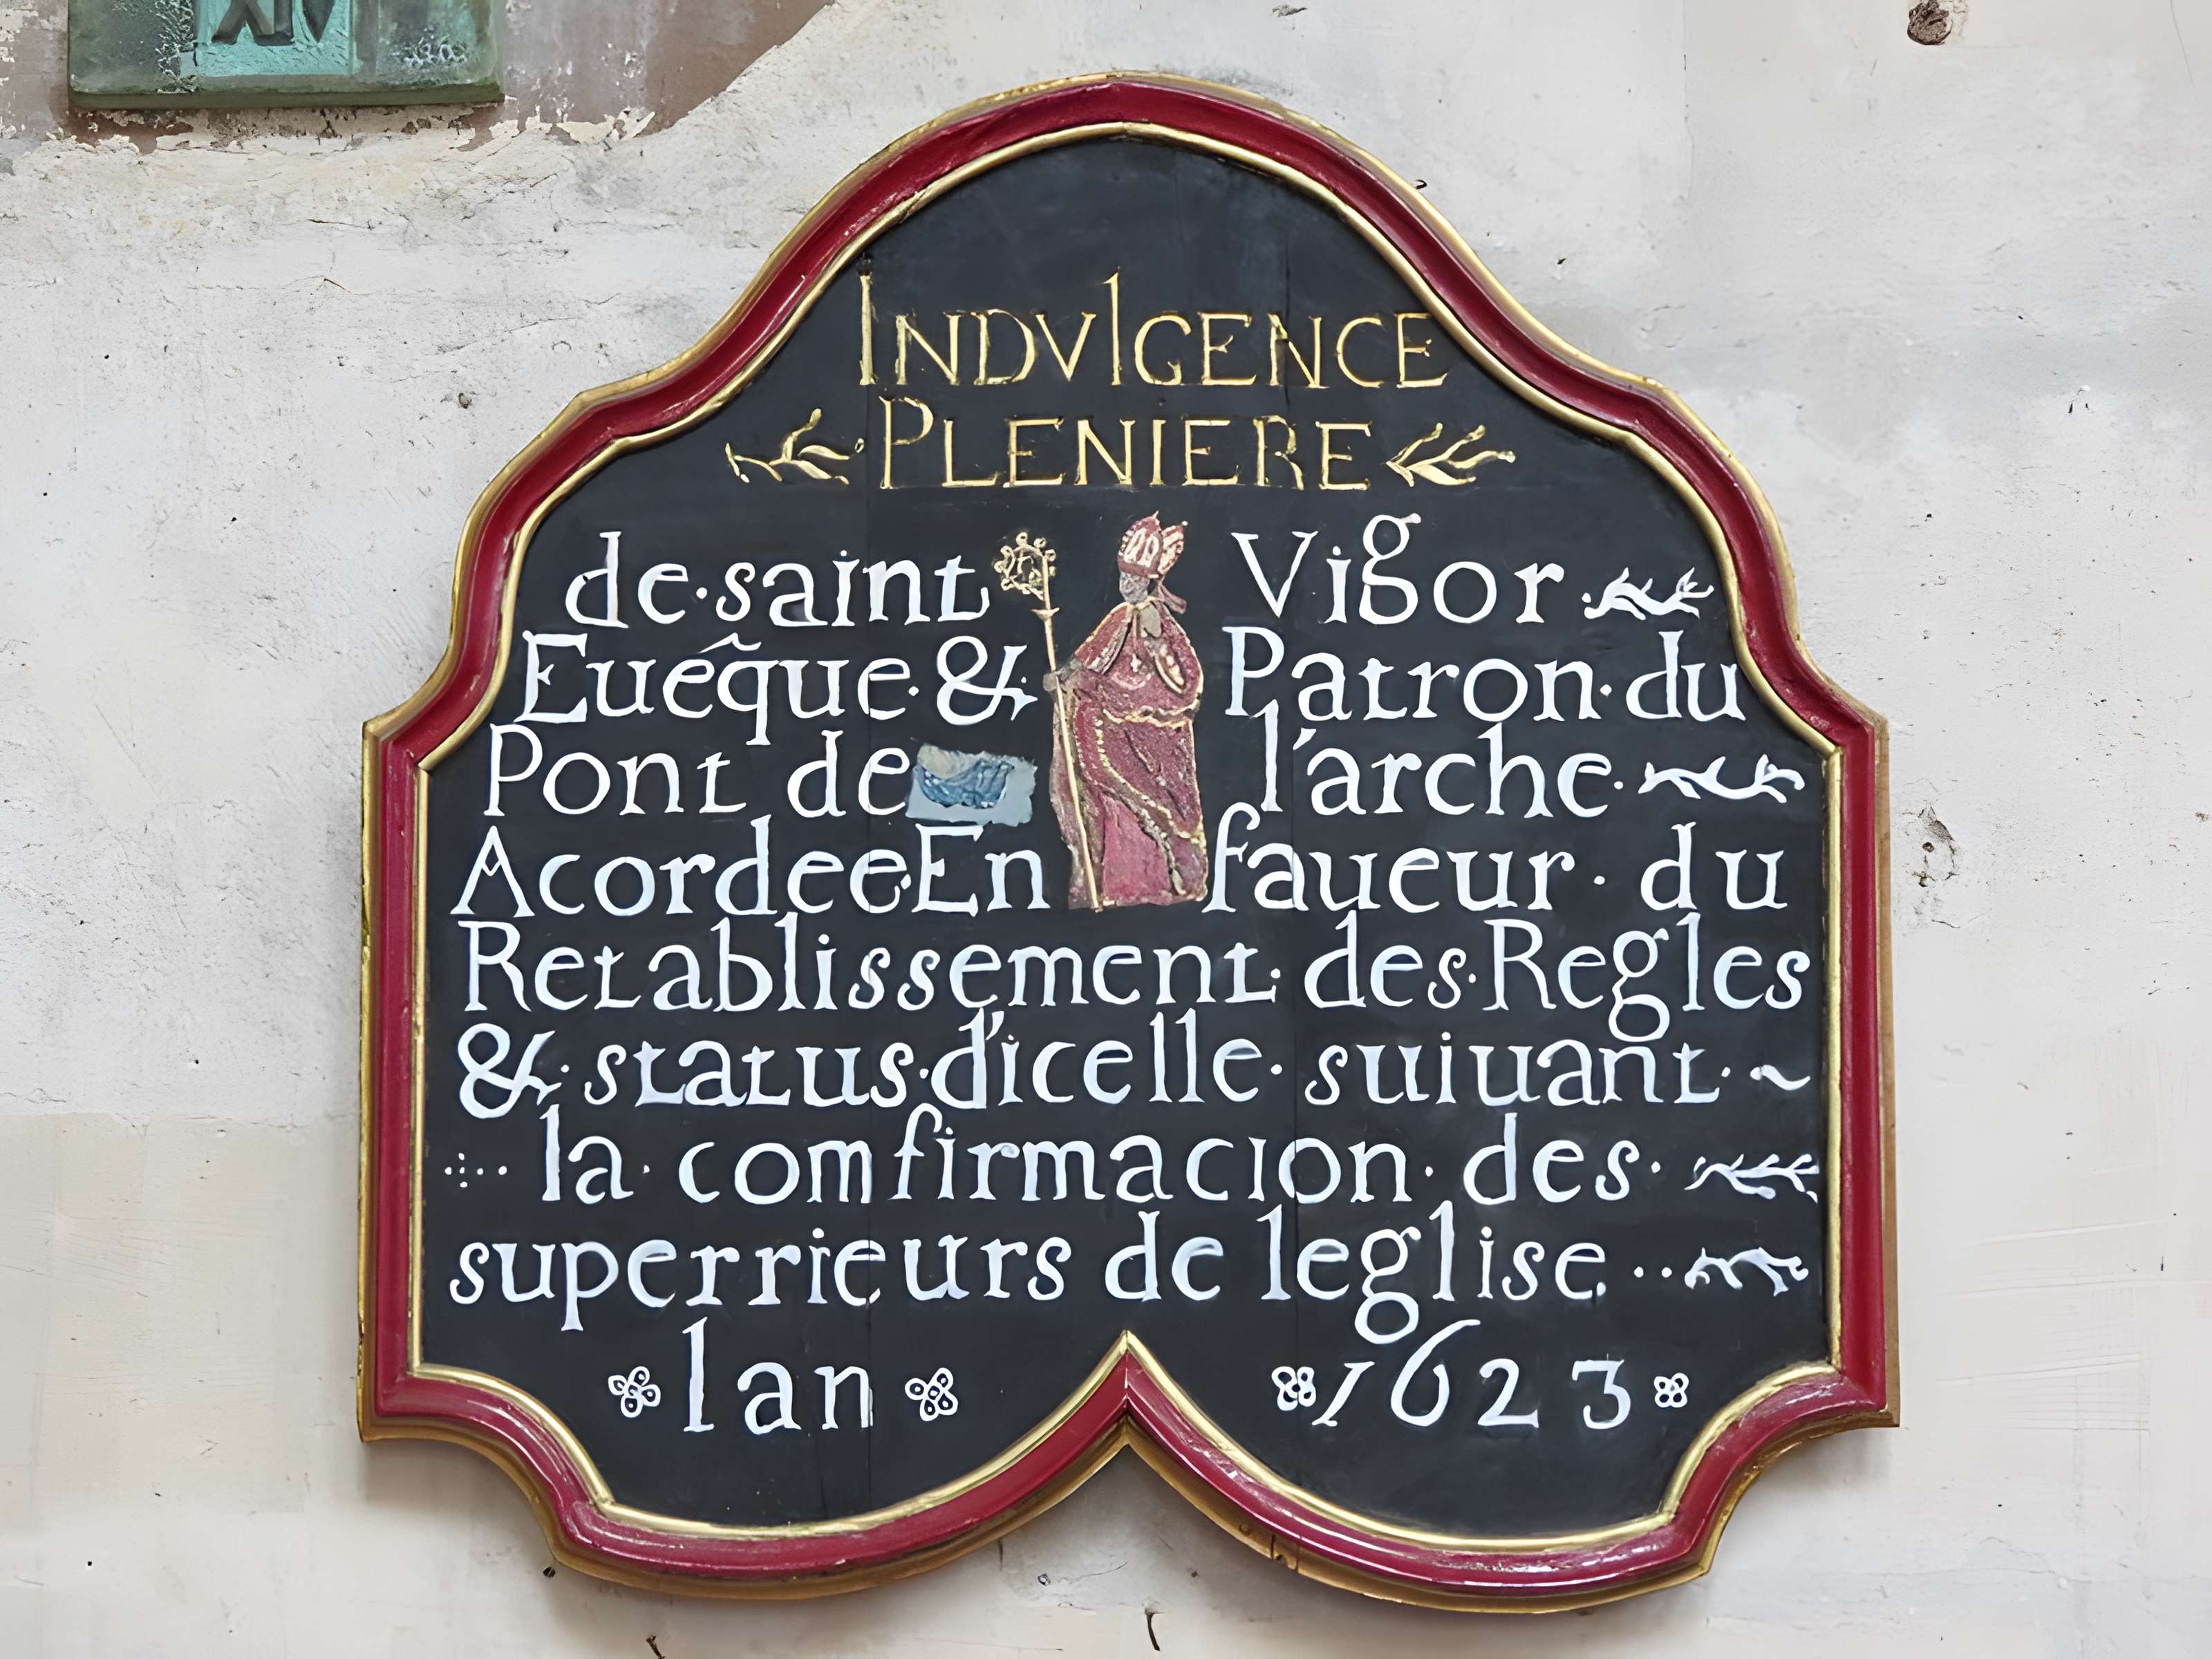 XIV
INDVlGENCE
PLENIERE
de·saint Vigor
Euéq̃ue·& Patron·du
Pont de l'arche·
Acordee·En faueur· du
Retablissement· des·Regles
&·status·d'icelle· suiuant· ~
la· comfirmacion· des·
superrieurs de leglise··
lan 1623